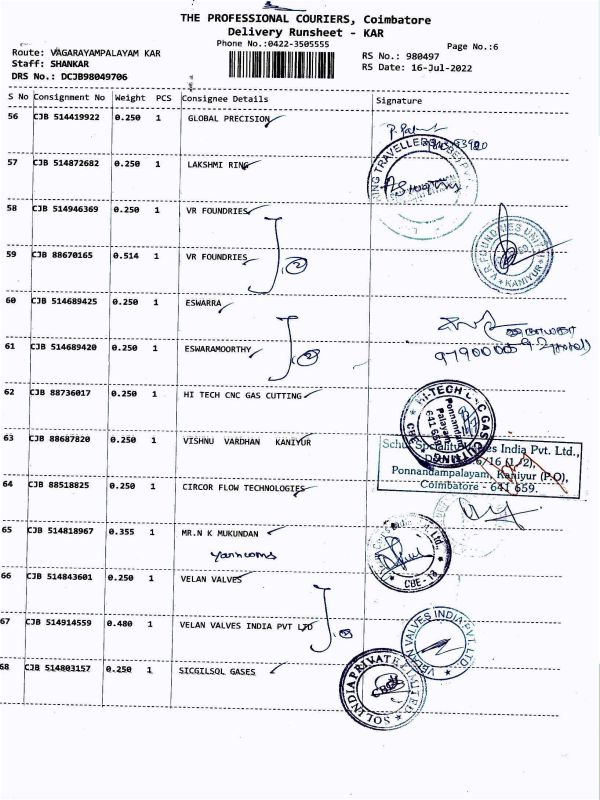 THE PROFESSIONAL COURIERS, Coimbatore
Delivery Runsheet - KAR
Phone No.:0422-3505555
Page No.:6
Route: VAGARAYAMPALAYAM KAR
Staff: SHANKAR
DRS No.: DCJB98049706
RS No.: 980497
RS Date: 16-Jul-2022
S No Consignment No Weight PCS Consignee Details Signature
56 CJB 514419922 0.250 1 GLOBAL PRECISION
57 CJB 514872682 0.250 1 LAKSHMI RING
58 CJB 514946369 0.250 1 VR FOUNDRIES
59 CJB 88670165 0.514 1 VR FOUNDRIES
KANIYUR
60 CJB 514689425 0.250 1 ESWARRA
61 CJB 514689420 0.250 1 ESWARAMOORTHY
62 CJB 88736017 0.250 1 HI TECH CNC GAS CUTTING
HI-TECH CNC GAS CUTTING
Ponnandam
Palayam
641 659
CBE
63 CJB 88687820 0.250 1 VISHNU VARDHAN KANIYUR
India Pvt. Ltd.,
Ponnandampalayam, Kaniyur (P.O),
Coimbatore - 641 659.
64 CJB 88518825 0.250 1 CIRCOR FLOW TECHNOLOGIES
65 CJB 514818967 0.355 1 MR.N K MUKUNDAN
66 CJB 514843601 0.250 1 VELAN VALVES
67 CJB 514914559 0.480 1 VELAN VALVES INDIA PVT LTD
VELAN VALVES INDIA PVT. LTD
68 CJB 514803157 0.250 1 SICGILSOL GASES
SOL INDIA PRIVATE LIMITED